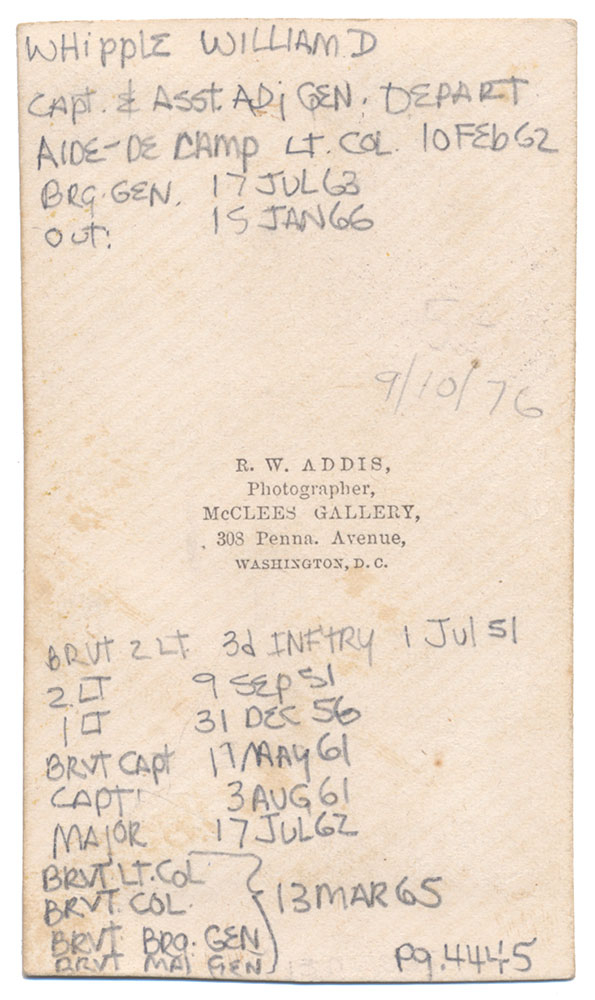 WHipple WILLIAM D
CAPT. & ASST. ADj GEN. DEPART
AIDE-DE CAMP LT. COL. 10 FEb 62
BRG. GEN. 17 JUL 63
OUT: 15 JAN 66
9/10/76
R. W. ADDIS,
Photographer,
McCLEES GALLERY,
308 Penna. Avenue,
WASHINGTON, D. C.
BRVT 2 LT 3d INFTRY 1 Jul 51
2 LT 9 SEP 51
1 LT 31 DEC 56
BRVT CAPT 17 MAY 61
CAPT 3 AUG 61
MAJOR 17 JUL 62
BRVT LT. COL
BRVT. COL. 13 MAR 65
BRVT BRG. GEN
BRVT MAJ GEN
pg. 4445